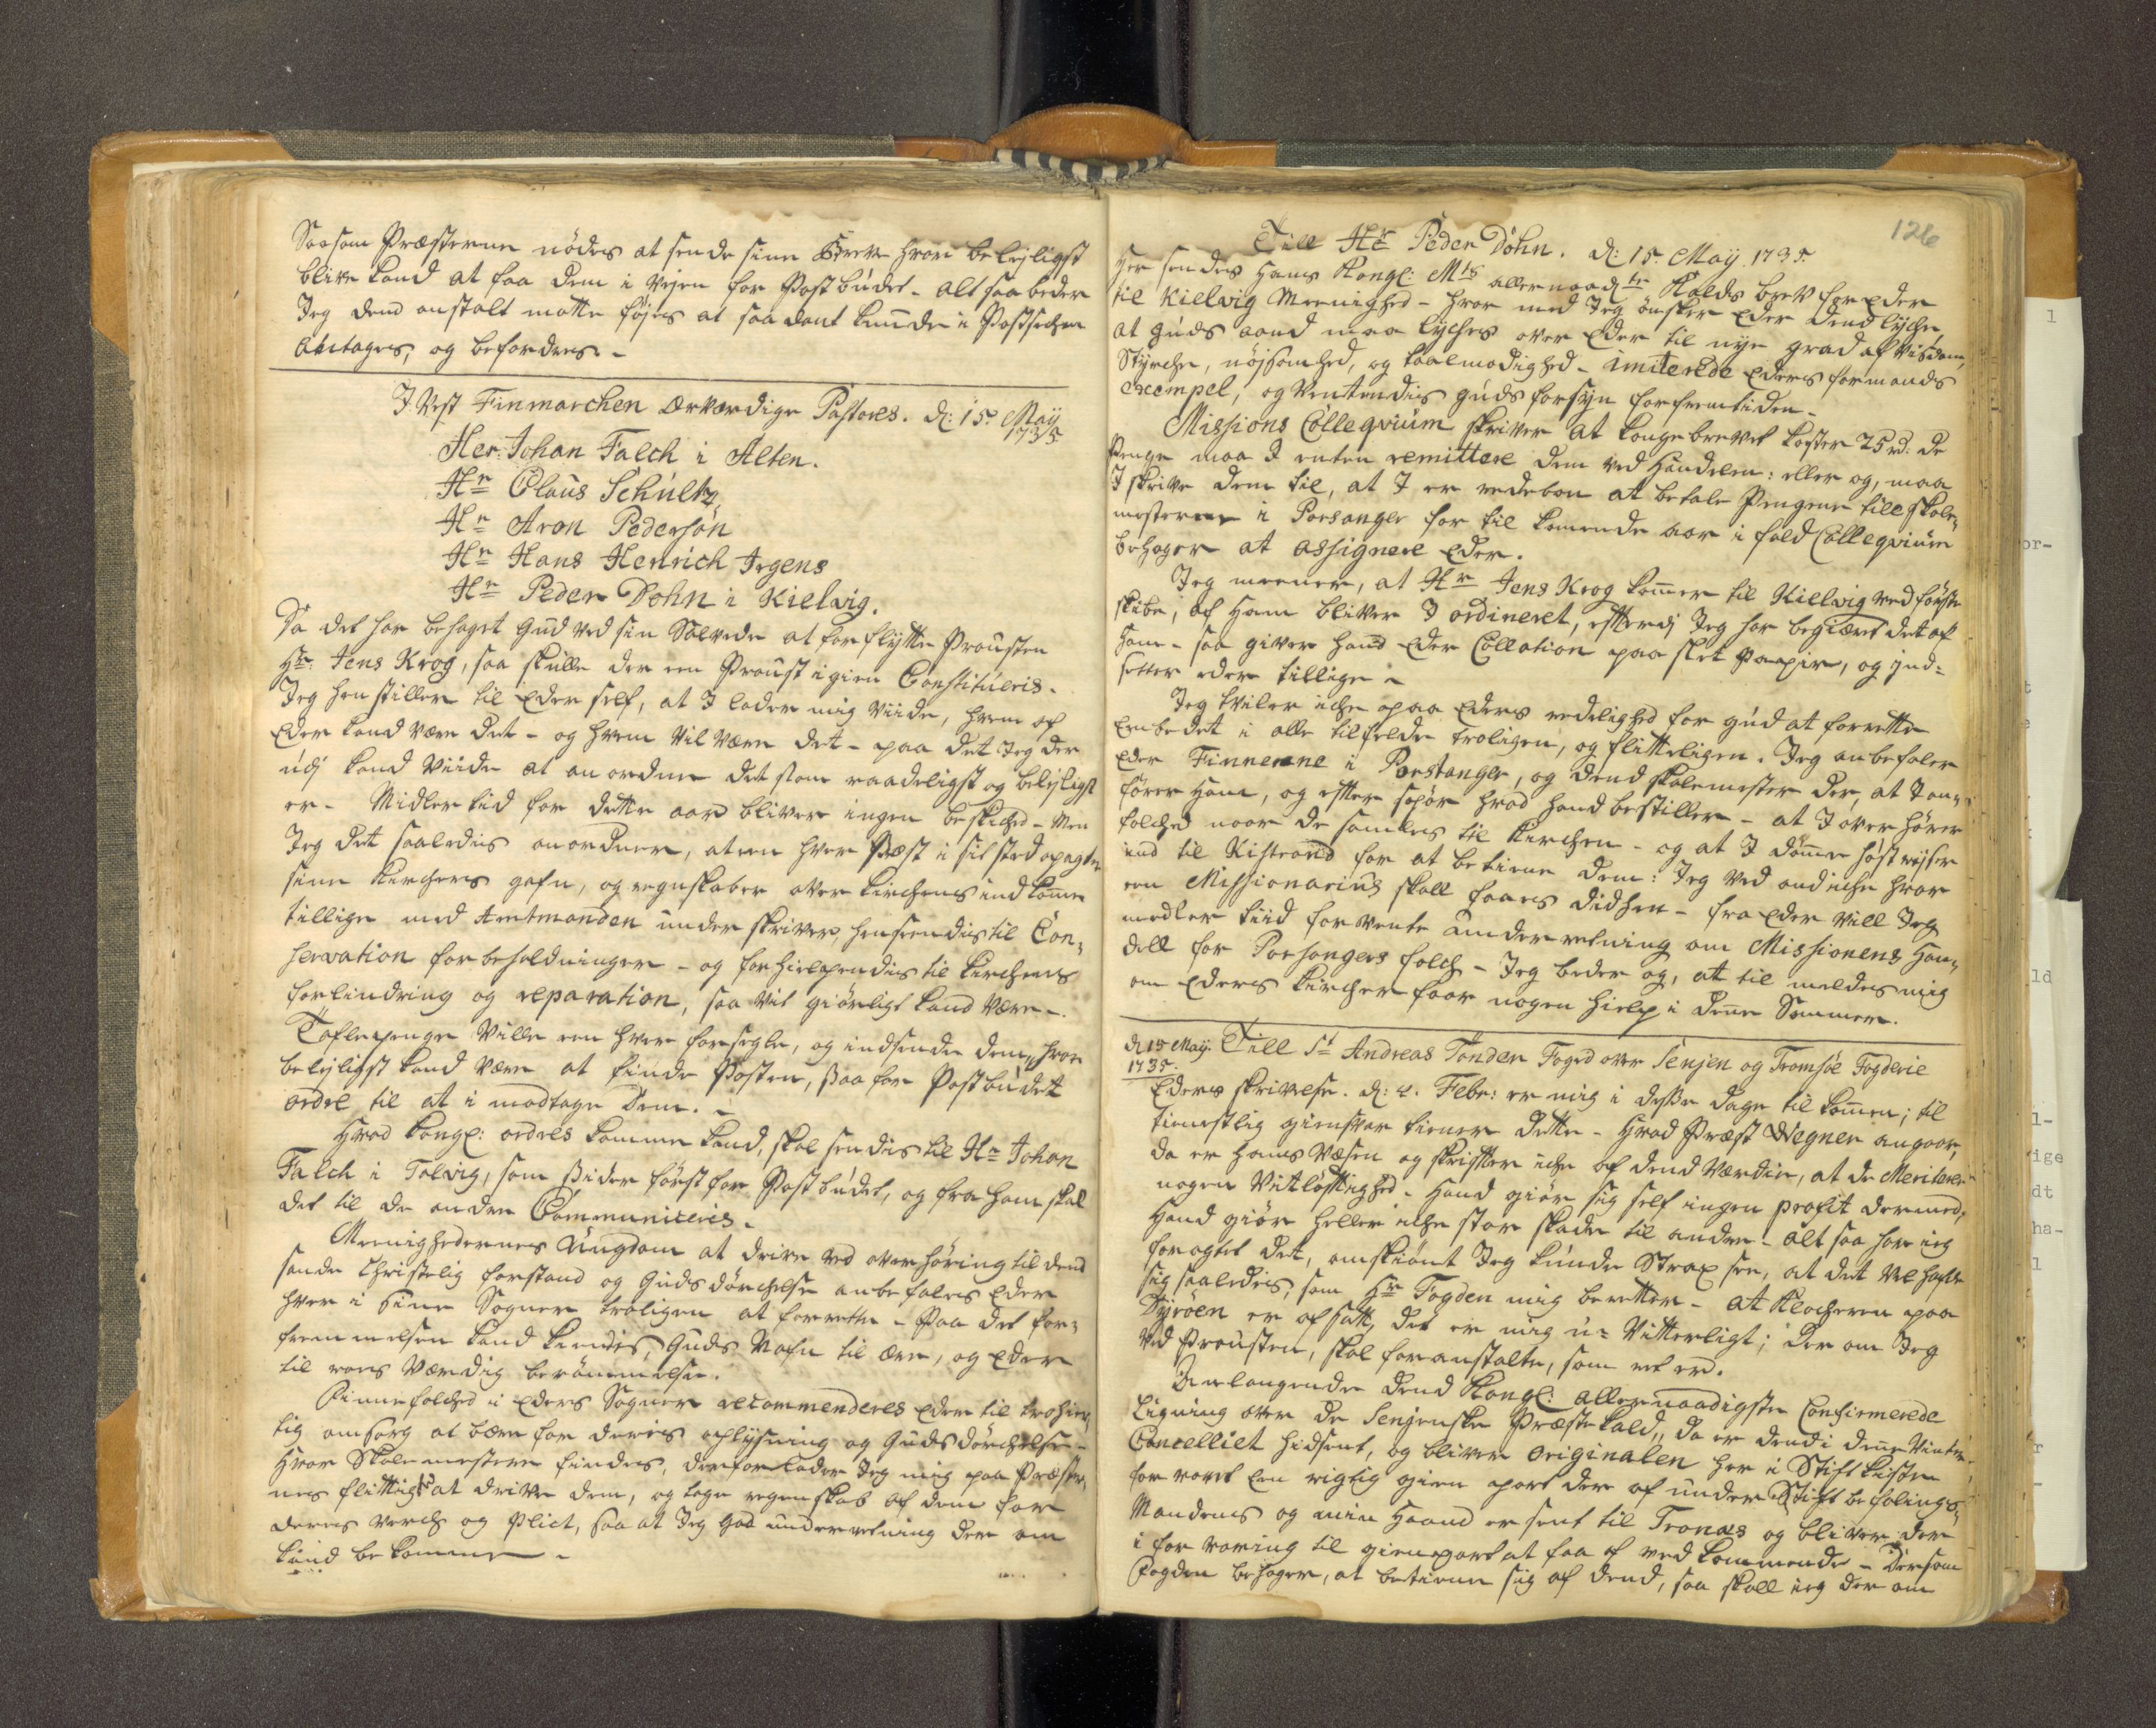 Saasom Præsterne nødes at sende sine Breve hvor belejligst
blive kand at faa dem i Vejen for Postbudet - alt saa beder
Jeg dend anstalt motte føjes at saadant kunde i Postsechen
antages, og befordres -
I Vest Finmarchen ærværdige Pastores. d: 15. Maij
1735
Her: Johan Falch i Alten.
Hr Claus Schultz
Hr Aron Pedersøn
Hr Hans Henrich Irgens
Hr Peder Dohn i Kielvig.
Da det har behaget Gud ved sin Salvede at forflytte Prousten
Hr: Jens Krog, saa skulle der een Proust igien Constitueris.
Jeg henstiller til Eder self, at I lader mig viide, hvem af
Eder kand være det - og hvem vil være det - paa det Jeg der
udj kand viide at anordne det som raadeligst og belejligst
er - Midlertid for dette aar bliver ingen beskiched - Men
Jeg det saaledis anordner, at een hver Præst i sit sted
sine Kirchers gafn, og regnskaber over Kirchens indkomme
tillige med Amtmanden underskriver, henseendis til Con-
servation forbeholdninger - og forhielpendis til Kirchens
forlindring og reparation, saa vit giørligt kand være -
Taflepenge Ville een hver forsegle, og indsende dem, hvor
belejligst kand være at finde Posten, saa for Postbudet
ordre til at i modtage dem. -
Hvad kongl: ordres komme kand, skal sendis til Hr Johan
Falch i Talvig, som sider først for Postbudet, og fra ham skal
det til de andre Communiceris.
Meenighedernes Ungdom at drive ved overhøring til dend
sande Christelig forstand og Guds dørchelse anbefales Eder
hver i sine Sogner troligen at forrette - Paa det for-
fremmelsen kand kiendis, Guds Nafn til ære, og Eder
til roes værdig berømmelse.
Finnefolched i Eders Sogner recommenderes Eder til trohier-
tig omsorg at bære for deris oplysning og Guds dørchelse -
Hvor Skolemestere findes, derfor lader Jeg mig paa Præster-
nes flittighed at drive dem, og tage regenskab af dem for
deres verch og Plict, saa at Jeg god underretning der om
kand bekomme -
126
Till Hr Peder Dohn. d: 15. May. 1735.
Her sendes Hans Kongl: Mts allernaadigste Kalds brev for Eder
til Kielvig Meenighed - hvor med Jeg ønsker Eder dend lyche,
at Guds aand maa lyches over Eder til nye grad af Visdom,
Styrche, nøjsomhed, og taalmodighed - imiterede Eders formands
exempel, og Ventendis Guds forsyn for fremtiden -
Missions Collegvium skriver at Konge brevet koster 25 rd: de
Penge maa I enten remittere dem ved Handelen: eller og, maa
I skrive dem til, at I er redebon at betale Pengene till skole-
mesterne i Porsanger for til komende aar i fald Collegvium
behager at assignere Eder.
Jeg meener, at Hr Jens Krog kommer til Kielvig ved første
skibe, af ham bliver I ordineret, efterdj Jeg har begiæret det af
ham - saa giver hand Eder Collation paa slet Papir, og ind-
setter eder tillige -
Jeg tviler iche paa Eders redelighed for gud at forrette
Embedet i alle tilfelde troligen, og flitteligen. Jeg anbefaler
Eder Finnerne i Porsanger, og dend skolemester der, at I an-
fører ham, og efter spør hvad hand bestiller - at I over hører
folched naar de samles til Kirchen - og at I dømme høst rejser
ind til Kistrand for at betiene dem: Jeg ved end iche hvor
een Missionarius skall faaes didhen - fra Eder vill Jeg
medler tiid forvente underretning om Missionens Han-
dell for Porsangers folch - Jeg beder og, at til meldes mig
om Eders Kircher faar nogen hielp i denne Sommer.
d. 15 Maij. Till Sr Andreas Tønder Foged over Senjen og Tromsøe Fogderie
1735.
Eders skrivelse d: 2. Febr: er mig i disse dage til kommen; til
tienestlig giensvar tiener dette - Hvad Præst Wegner angaar,
da er hans Væsen og skrifter iche af dend Værdie, at de Meriterer
nogen Vitløftighed - Hand giør sig self ingen profit dermed,
Hand giør heller iche stor skade til andre - alt saa har ieg
foragtet det, omskiønt Jeg kunde Strax see, at det vel hafde
sig saaledis, som Hr Fogden mig beretter - At Klocheren paa
Dyrøen er afsatt, det er mig u-Vitterligt; der om Jeg
ved Prousten, skal foranstalte, som ret er.
Anlangende dend Kongl: allernaadigste Confirmerede
Ligning over de Senjenske Præstekald, da er dend i denne Vinter
Cancelliet hidsent, og bliver Originalen her i Stift kisten
forvaret Een rigtig gien part der af under Stift befalings
Mandens og min Haand er sent til Tronæs og bliver der
i forvaring til gienpart at faa af vedkommende - Dersom
Fogden behager, at betiene sig af dend, saa skall ieg der om